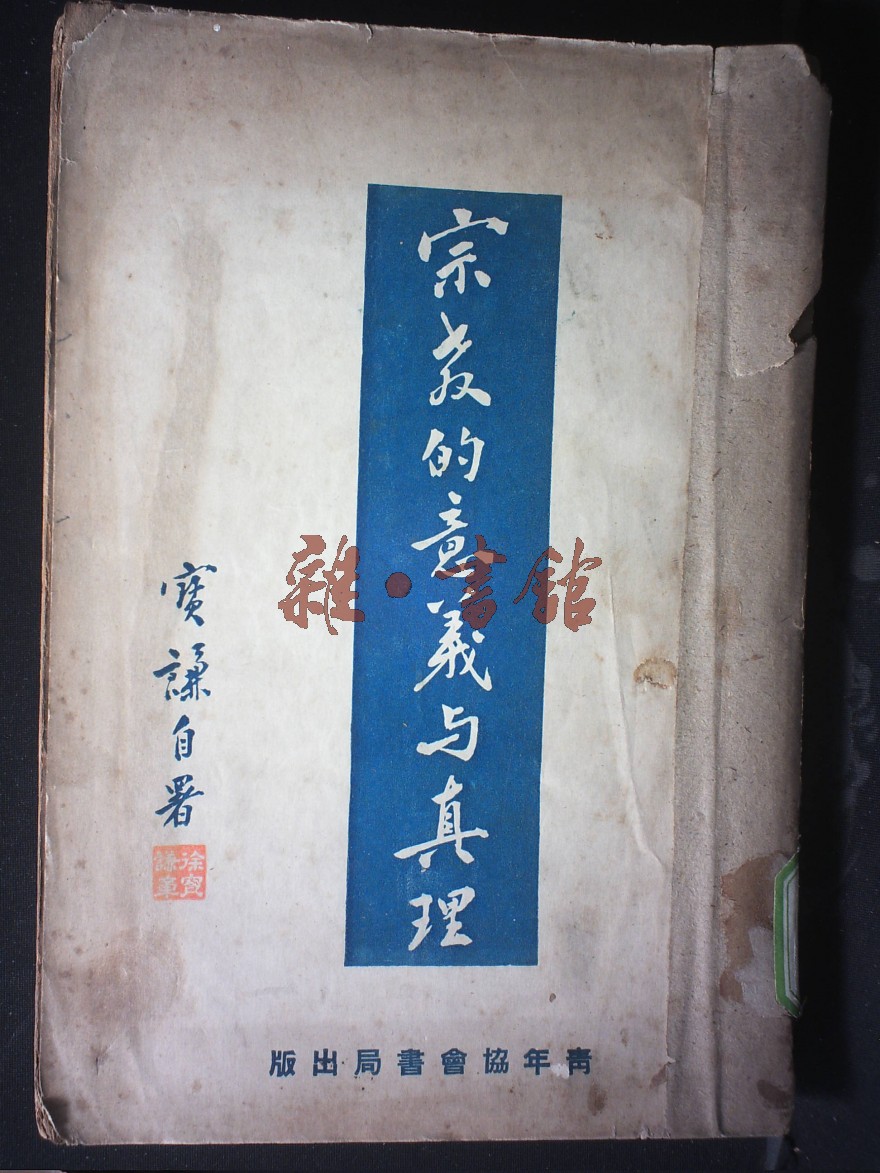 宗教的意義与真理
寶謙自署
徐寶謙章
青年協會書局出版
雜·書館